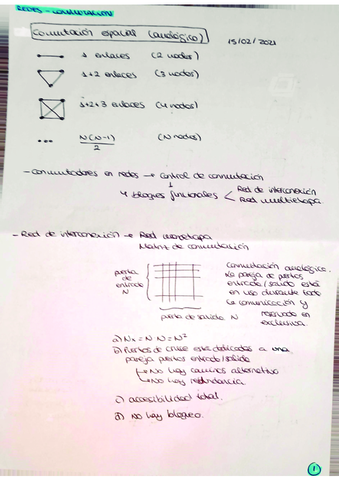 REDES - CONMUTACIÓN
Conmutación espacial (analógico)
15/02/2021
1 enlaces (2 nodos)
1+2 enlaces (3 nodos)
1+2+3 enlaces (4 nodos)
... N(N-1)/2 (N nodos)
- Conmutadores en redes → Control de conmutación
4 bloques funcionales < Red de interconexión
Red multietapa
- Red de interconexión → Red monoetapa
Matriz de conmutación
puertos de entrada N
puertos de salida N
Conmutación analógico.
La pareja de puertos
entrada/salida está
en uso durante toda
la comunicación y
reservado en
exclusiva
a) Nx = N · N = N²
b) Puntos de cruce están dedicados a una
pareja puertos entrada/salida
↳ No hay caminos alternativo
↳ No hay redundancia.
c) accesibilidad total.
d) No hay bloqueo.
1